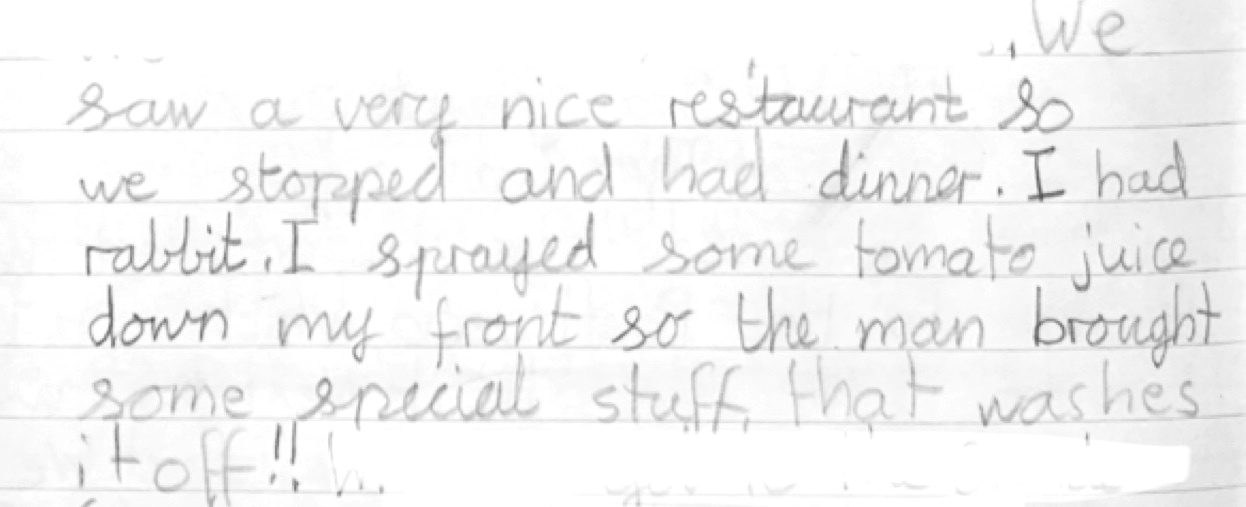 We
saw a very nice restaurant so
we stopped and had dinner. I had
rabbit. I sprayed some tomato juice
down my front so the man brought
some special stuff that washes
it off!!